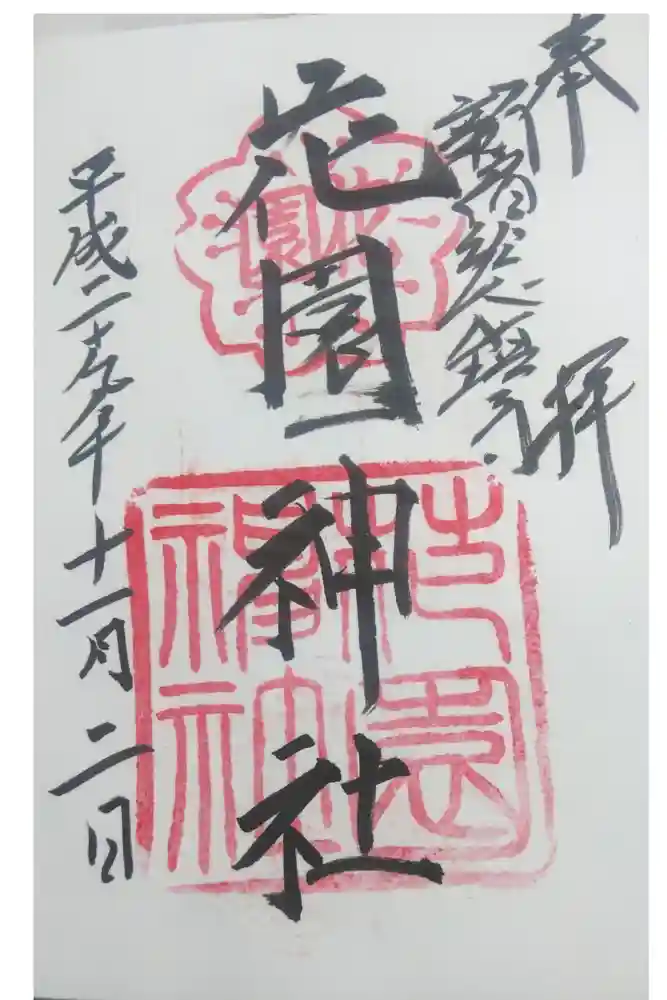 奉拝
新宿総鎮守
花園神社
平成二十九年十一月二日
花園